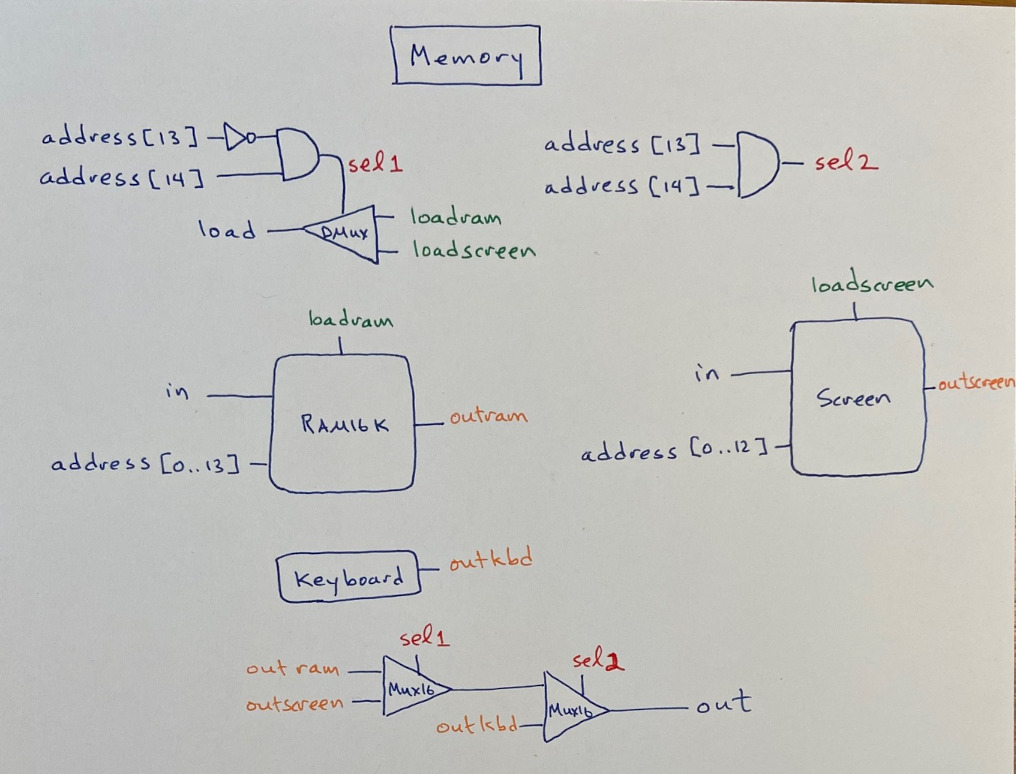 Memory
address[13]
address[14]
sel1
load
DMux
loadram
loadscreen
address [13]
address [14]
sel2
loadram
in
address [0..13]
RAM16K
outram
loadscreen
in
address [0..12]
Screen
outscreen
Keyboard
outkbd
sel1
out ram
outscreen
Mux16
sel2
outkbd
Mux16
out